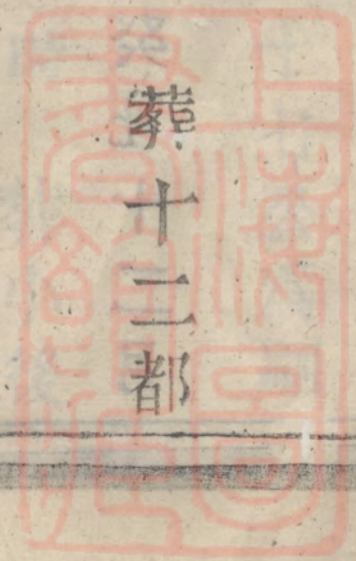 葬十二都
上海圖書館藏